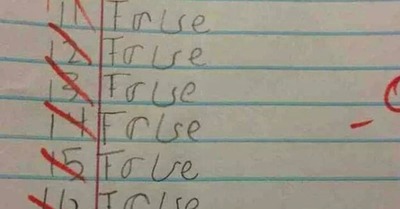 11 False
12 False
13 False
14 False
15 False
16 False